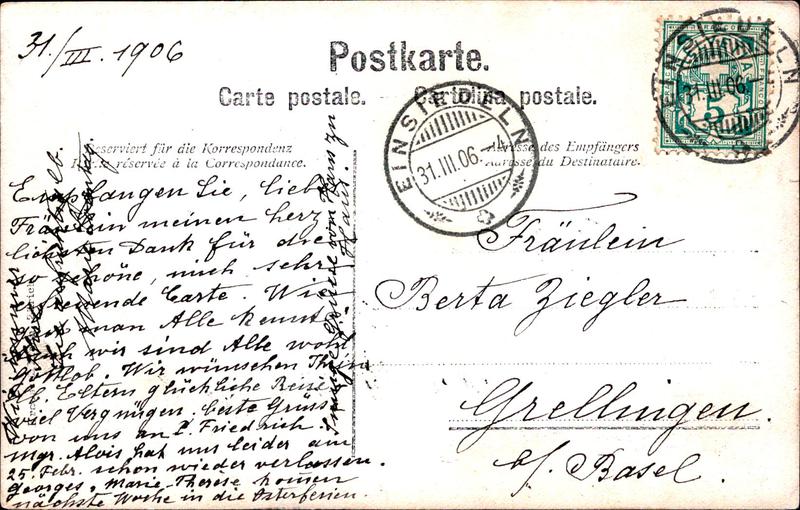 31./III. 1906
Postkarte.
Carte postale. Cartolina postale.
EINSIEDELN
31.III.06.
EINSIEDELN
31.III.06.
5
Reserviert für die Korrespondenz
réservée à la Correspondance.
Adresse des Empfängers
Adresse du Destinataire.
Empfangen Sie, liebes
Fräulein meinen herz
lichsten Dank für die
so schöne, mich sehr
freuende Carte. Wie
man Alle kennt
wir sind Alle wohl
gottlob. Wir wünschen Ihren
lb. Eltern glückliche Reise
viel Vergnügen. beste Grüsse
von uns an P. Friedrich.
Mgr. Alois hat uns leider am
25. Febr. schon wieder verlassen.
Georges, Marie-Therese kommen
nächste Woche in die Osterferien.
von Haus zu
Haus.
Fräulein
Berta Ziegler
Grellingen.
b/. Basel.